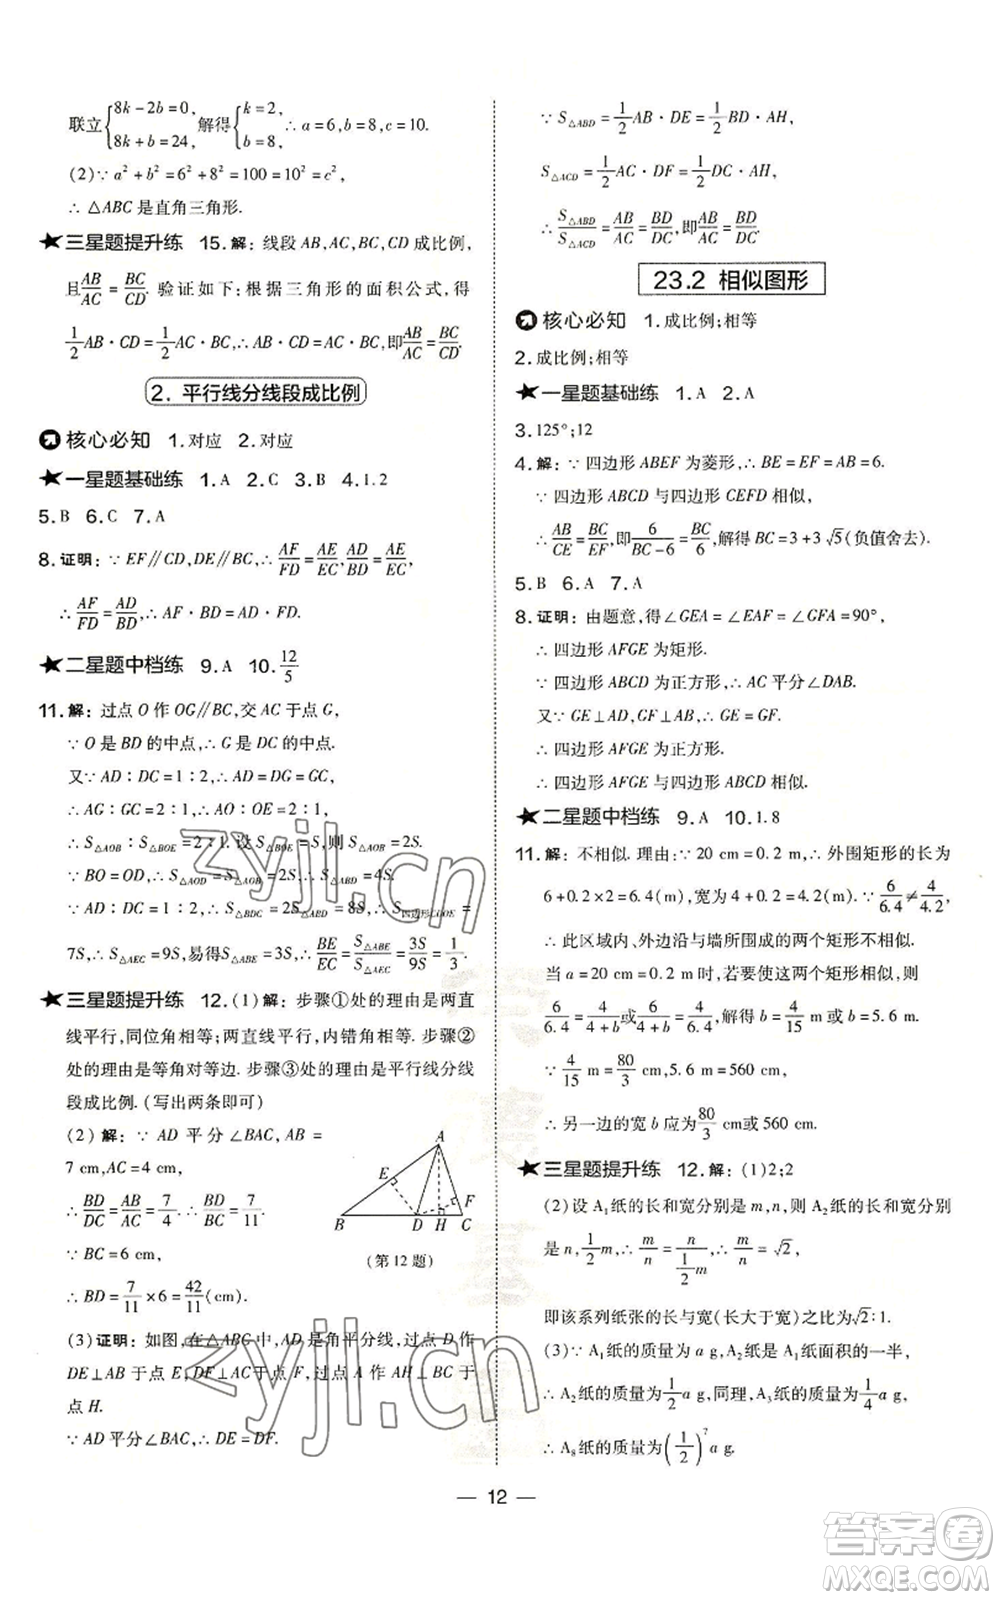 联立{8k-2b=0, 8k+b=24, 解得{k=2, b=8, ∴a=6,b=8,c=10.
(2)∵a²+b²=6²+8²=100=10²=c²,
∴△ABC是直角三角形.
★三星题提升练 15.解:线段AB,AC,BC,CD成比例,
且AB/AC=BC/CD.验证如下:根据三角形的面积公式,得
1/2AB·CD=1/2AC·BC,∴AB·CD=AC·BC,即AB/AC=BC/CD.
2. 平行线分线段成比例
核心必知 1.对应 2.对应
★一星题基础练 1.A 2.C 3.B 4.1.2
5.B 6.C 7.A
8.证明:∵EF∥CD,DE∥BC,∴AF/FD=AE/EC,AD/BD=AE/EC,
∴AF/FD=AD/BD,∴AF·BD=AD·FD.
★二星题中档练 9.A 10.12/5
11.解:过点O作OG∥BC,交AC于点G,
∵O是BD的中点,∴G是DC的中点.
又∵AD∶DC=1∶2,∴AD=DG=GC,
∴AG∶GC=2∶1,∴AO∶OE=2∶1,
∴S△AOB∶S△BOE=2∶1.设S△BOE=S,则S△AOB=2S.
∵BO=OD,∴S△AOD=S△AOB=2S,∴S△ABD=4S.
∵AD∶DC=1∶2,∴S△BDC=2S△ABD=8S,∴S四边形CDOE=
7S,∴S△AEC=9S,易得S△ABE=3S,∴BE/EC=S△ABE/S△AEC=3S/9S=1/3.
★三星题提升练 12.(1)解:步骤①处的理由是两直
线平行,同位角相等;两直线平行,内错角相等.步骤②
处的理由是等角对等边.步骤③处的理由是平行线分线
段成比例.(写出两条即可)
(2)解:∵AD平分∠BAC,AB=
7 cm,AC=4 cm,
∴BD/DC=AB/AC=7/4.∴BD/BC=7/11.
∵BC=6 cm,
∴BD=7/11×6=42/11(cm).
A
E
F
B
D
H
C
(第12题)
(3)证明:如图,在△ABC中,AD是角平分线,过点D作
DE⊥AB于点E,DF⊥AC于点F,过点A作AH⊥BC于
点H.
∵AD平分∠BAC,∴DE=DF.
∵S△ABD=1/2AB·DE=1/2BD·AH,
S△ACD=1/2AC·DF=1/2DC·AH,
∴S△ABD/S△ACD=AB/AC=BD/DC,即AB/AC=BD/DC.
23.2 相似图形
核心必知 1.成比例;相等
2.成比例;相等
★一星题基础练 1.A 2.A
3.125°;12
4.解:∵四边形ABEF为菱形,∴BE=EF=AB=6.
∵四边形ABCD与四边形CEFD相似,
∴AB/CE=BC/EF,即6/(BC-6)=BC/6,解得BC=3+3√5(负值舍去).
5.B 6.A 7.A
8.证明:由题意,得∠GEA=∠EAF=∠GFA=90°,
∴四边形AFGE为矩形.
∵四边形ABCD为正方形,∴AC平分∠DAB.
又∵GE⊥AD,GF⊥AB,∴GE=GF.
∴四边形AFGE为正方形.
∴四边形AFGE与四边形ABCD相似.
★二星题中档练 9.A 10.1.8
11.解:不相似.理由:∵20 cm=0.2 m,∴外围矩形的长为
6+0.2×2=6.4(m),宽为4+0.2=4.2(m).∵6/6.4≠4/4.2,
∴此区域内、外边沿与墙所围成的两个矩形不相似.
当a=20 cm=0.2 m时,若要使这两个矩形相似,则
6/6.4=4/(4+b)或6/(4+b)=4/6.4,解得b=4/15 m或b=5.6 m.
∵4/15 m=80/3 cm,5.6 m=560 cm,
∴另一边的宽b应为80/3 cm或560 cm.
★三星题提升练 12.解:(1)2;2
(2)设A₁纸的长和宽分别是m,n,则A₂纸的长和宽分别
是n,1/2m,∴m/n=n/(1/2m),∴m/n=√2,
即该系列纸张的长与宽(长大于宽)之比为√2∶1.
(3)∵A₁纸的质量为a g,A₂纸是A₁纸面积的一半,
∴A₂纸的质量为1/2a g,同理,A₃纸的质量为1/4a g,
∴A₈纸的质量为(1/2)⁷a g.
— 12 —
zyjl.cn
zyjl.cn
答案圈
MXQE.COM